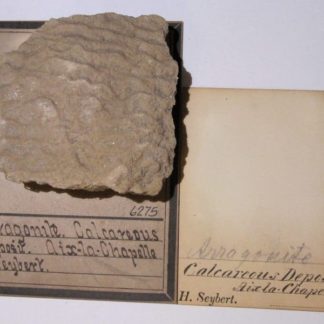 6275
ragonite. Calcareous
posit. Aix-la-Chapelle
Seybert.
Arragonite
Calcareous Depos
Aix-la-Chape
H. Seybert.